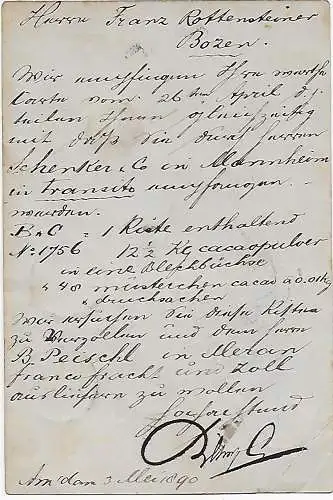 Herrn Franz Rottensteiner
Bozen.
Wir empfingen Ihre werthe
Carte vom 26ten April d.J.
teilen Ihnen gleichzeitig
mit daß Sie durch Herren
Schenker & Co in Mannheim
in transito empfangen
werden.
B & C = 1 Kiste enthaltend
No 1756 12½ Kg cacaopulver
in eine Blechbüchse
" 48 musterchen cacao
" drucksachen
Wir ersuchen Sie diese Kistne
zu verzollen und dem Herrn
B Peischl in Meran
franco fracht und Zoll
ausliefern zu wollen
Hochachtend
Amdam 3 Mei 1890